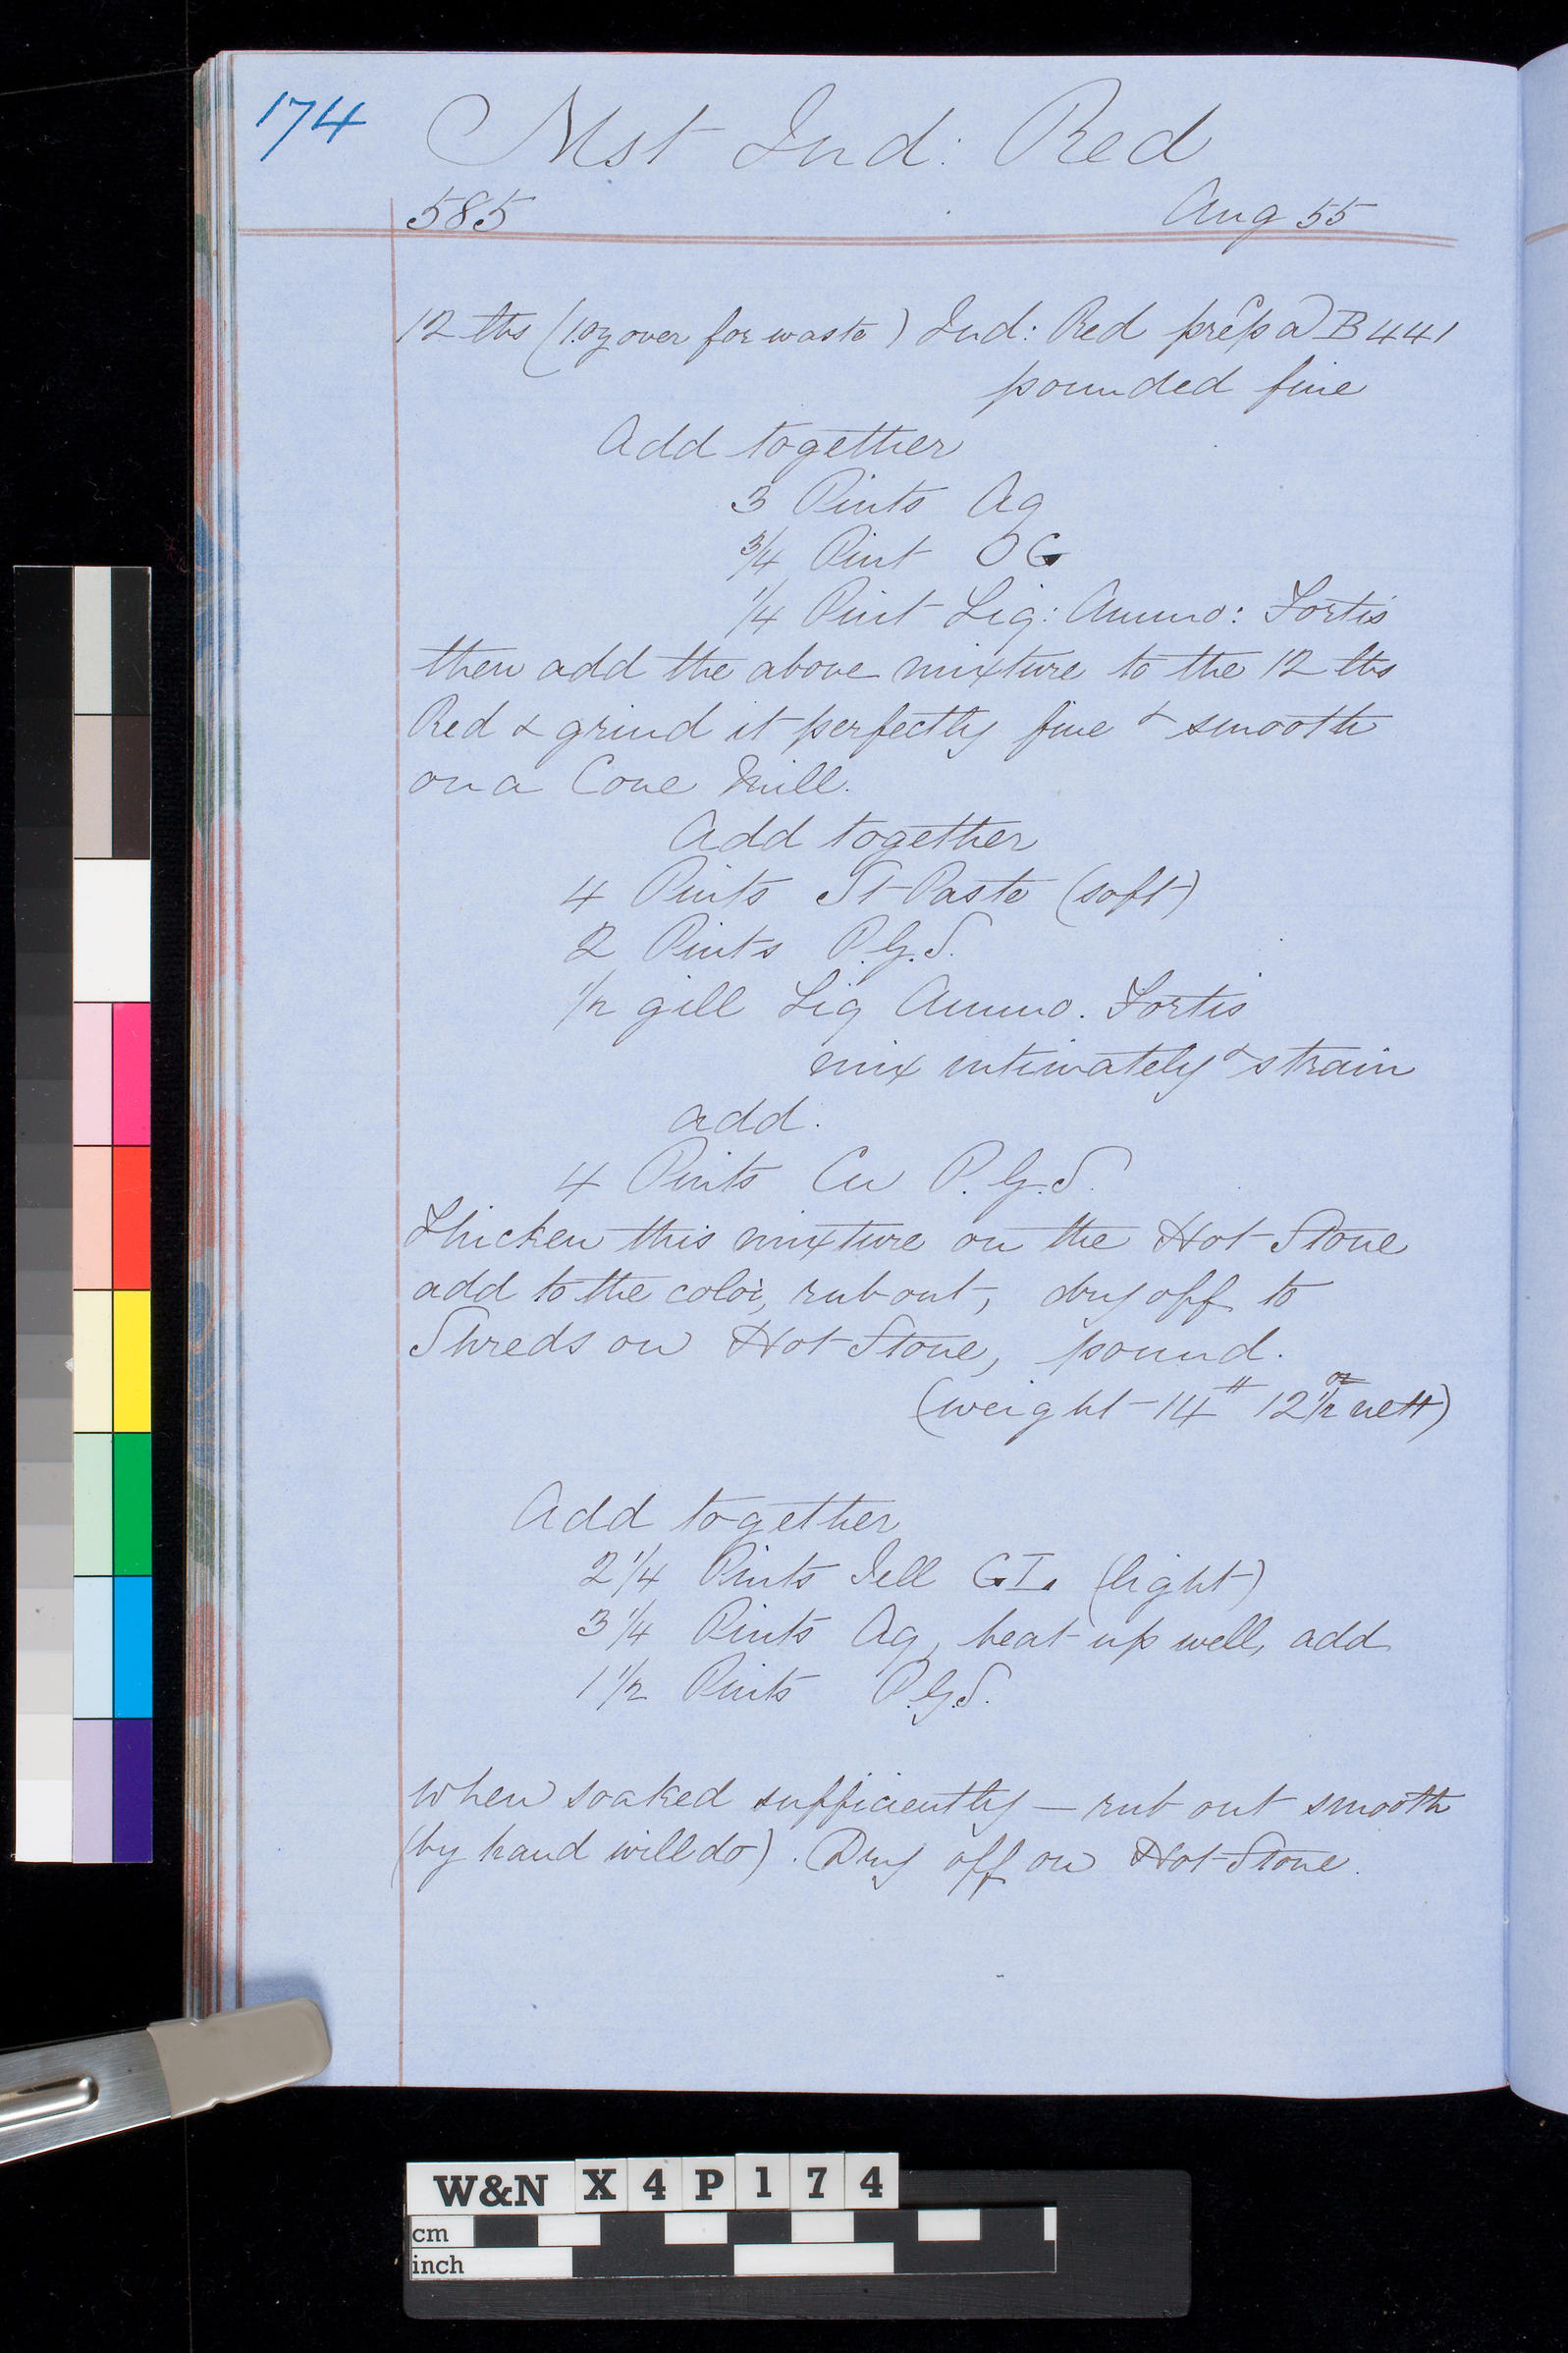 174
Mst Ind: Red
585 Aug 55
12 lbs (1 oz over for waste) Ind: Red prepd B441
pounded fine
Add together
3 Pints Aq
3/4 Pint OG
1/4 Pint Liq: Ammo: Fortis
then add the above mixture to the 12 lbs
Red & grind it perfectly fine & smooth
on a Cone Mill.
Add together
4 Pints St Paste (soft)
2 Pints P.G.S.
1/2 gill Liq Ammo. Fortis
mix intimately & strain
add.
4 Pints Cu P.G.S.
Thicken this mixture on the Hot Stone
add to the color, rub out, dry off to
Shreds on Hot Stone, pound.
(weight 14 # 12 1/2 oz nett)
Add together
2 1/4 Pints Jell GI. (light)
3 1/4 Pints Aq, heat up well, add
1 1/2 Pints P.G.S.
when soaked sufficiently — rub out smooth
(by hand will do). Dry off on Hot Stone.
W&N X4P174
cm
inch